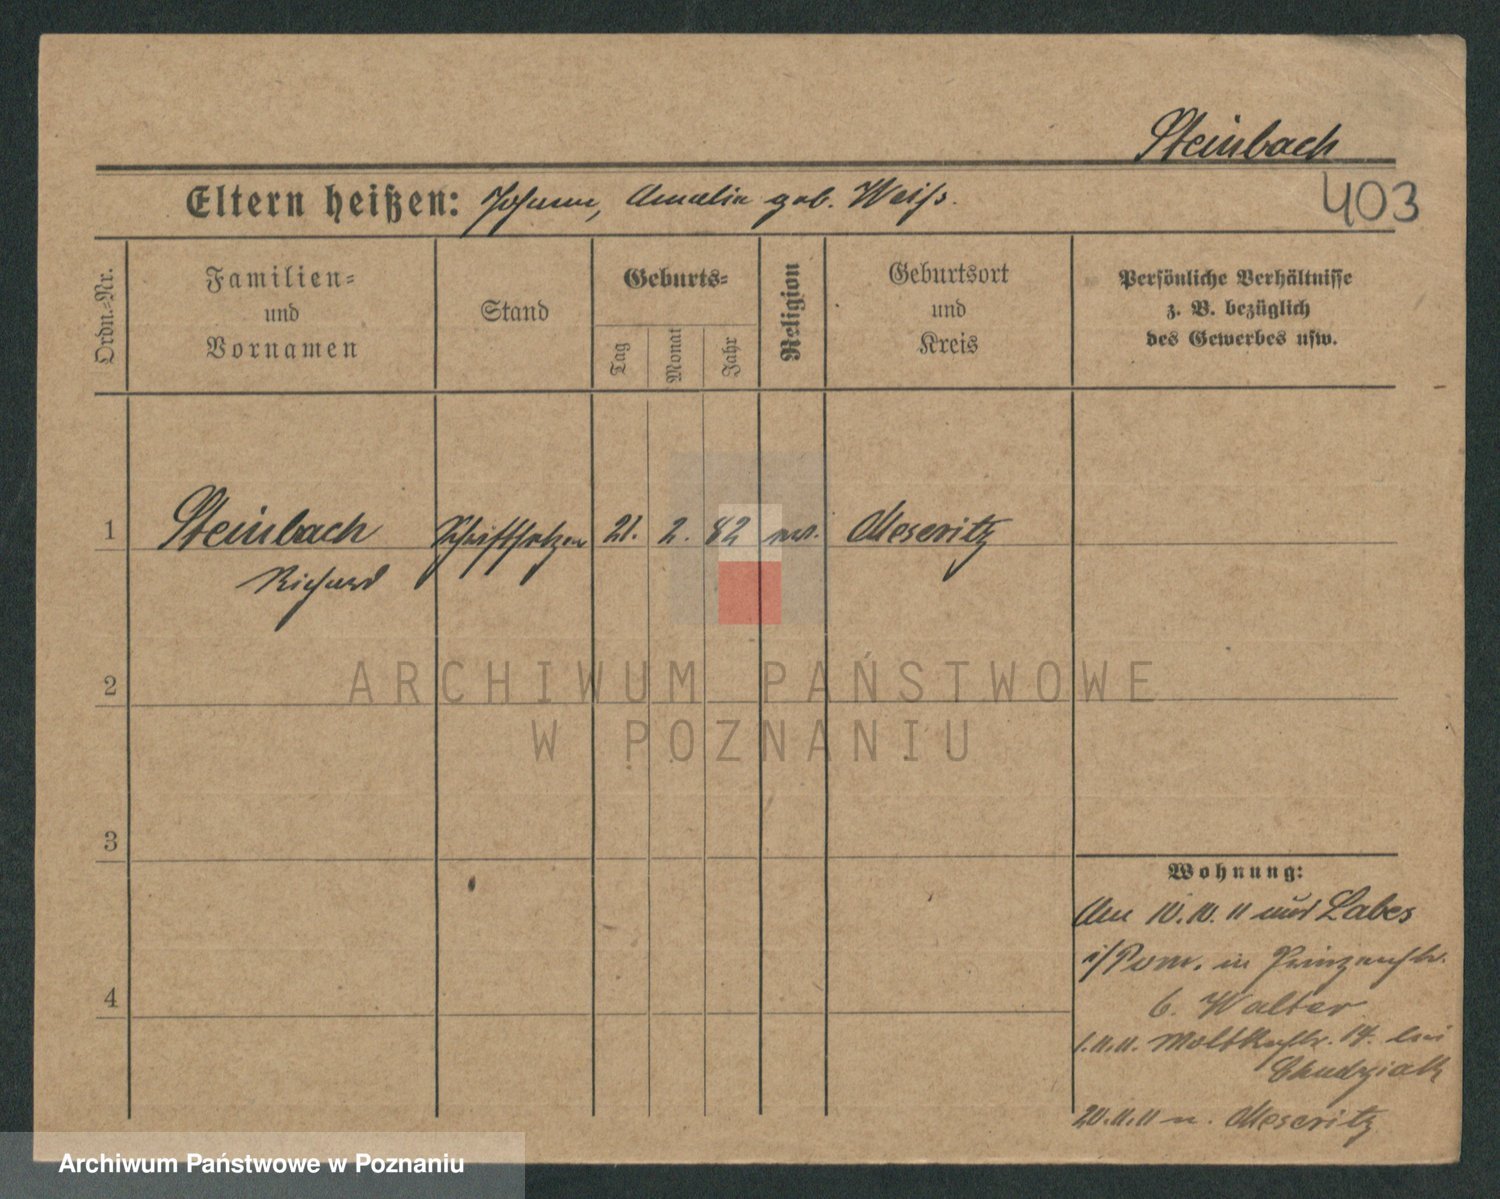 Steinbach
Eltern heißen: Johann, Amalie geb. Weiss.
403
Ordn.-Nr.
Familien-
und
Vornamen
Stand
Geburts-
Tag
Monat
Jahr
Religion
Geburtsort
und
Kreis
Persönliche Verhältnisse
z. B. bezüglich
des Gewerbes usw.
1
Steinbach
Richard
Schriftsetzer
21.
2.
82
ev.
Meseritz
2
3
4
Wohnung:
Am 10.10.11 aus Labes
i/Pom. in Prinzenstr.
6. Walter
1.11.11. Moltkestr. 14. bei
Chudziak
20.11.11 n. Meseritz
ARCHIWUM PAŃSTWOWE
W POZNANIU
Archiwum Państwowe w Poznaniu